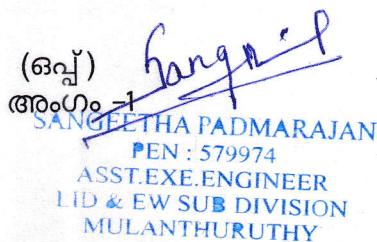 (ഒപ്പ്)
അംഗം -1
SANGEETHA PADMARAJAN
PEN : 579974
ASST.EXE.ENGINEER
LID & EW SUB DIVISION
MULANTHURUTHY